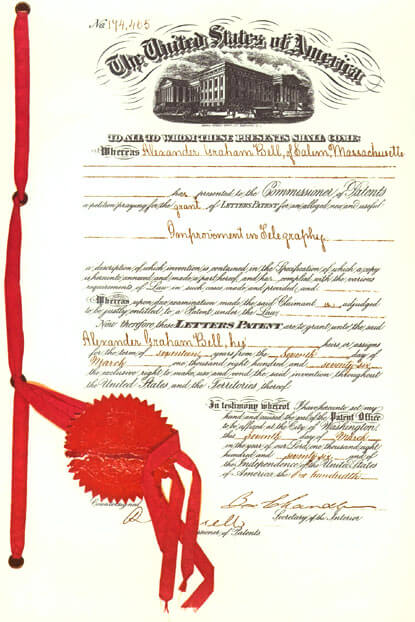 No. 174,465
The United States of America
TO ALL TO WHOM THESE PRESENTS SHALL COME:
Whereas Alexander Graham Bell, of Salem, Massachusetts
has presented to the Commissioner of Patents
a petition praying for the grant of LETTERS PATENT for an alleged new and useful
Improvement in Telegraphy,
a description of which invention is contained in the Specification of which a copy
is hereunto annexed and made a part hereof, and has complied with the various
requirements of Law in such cases made and provided, and
Whereas upon due examination made the said Claimant is adjudged
to be justly entitled to a Patent under the Law.
Now therefore these LETTERS PATENT are to grant unto the said
Alexander Graham Bell, his heirs or assigns
for the term of seventeen years from the seventh day of
March one thousand eight hundred and seventy six
the exclusive right to make, use and vend the said invention throughout
the United States and the Territories thereof.
In testimony whereof I have hereunto set my
hand and caused the seal of the Patent Office
to be affixed at the City of Washington
this seventh day of March
in the year of our Lord one thousand eight
hundred and seventy six and of
the Independence of the United States
of America the one hundredth.
Countersigned
Secretary of the Interior
of Patents